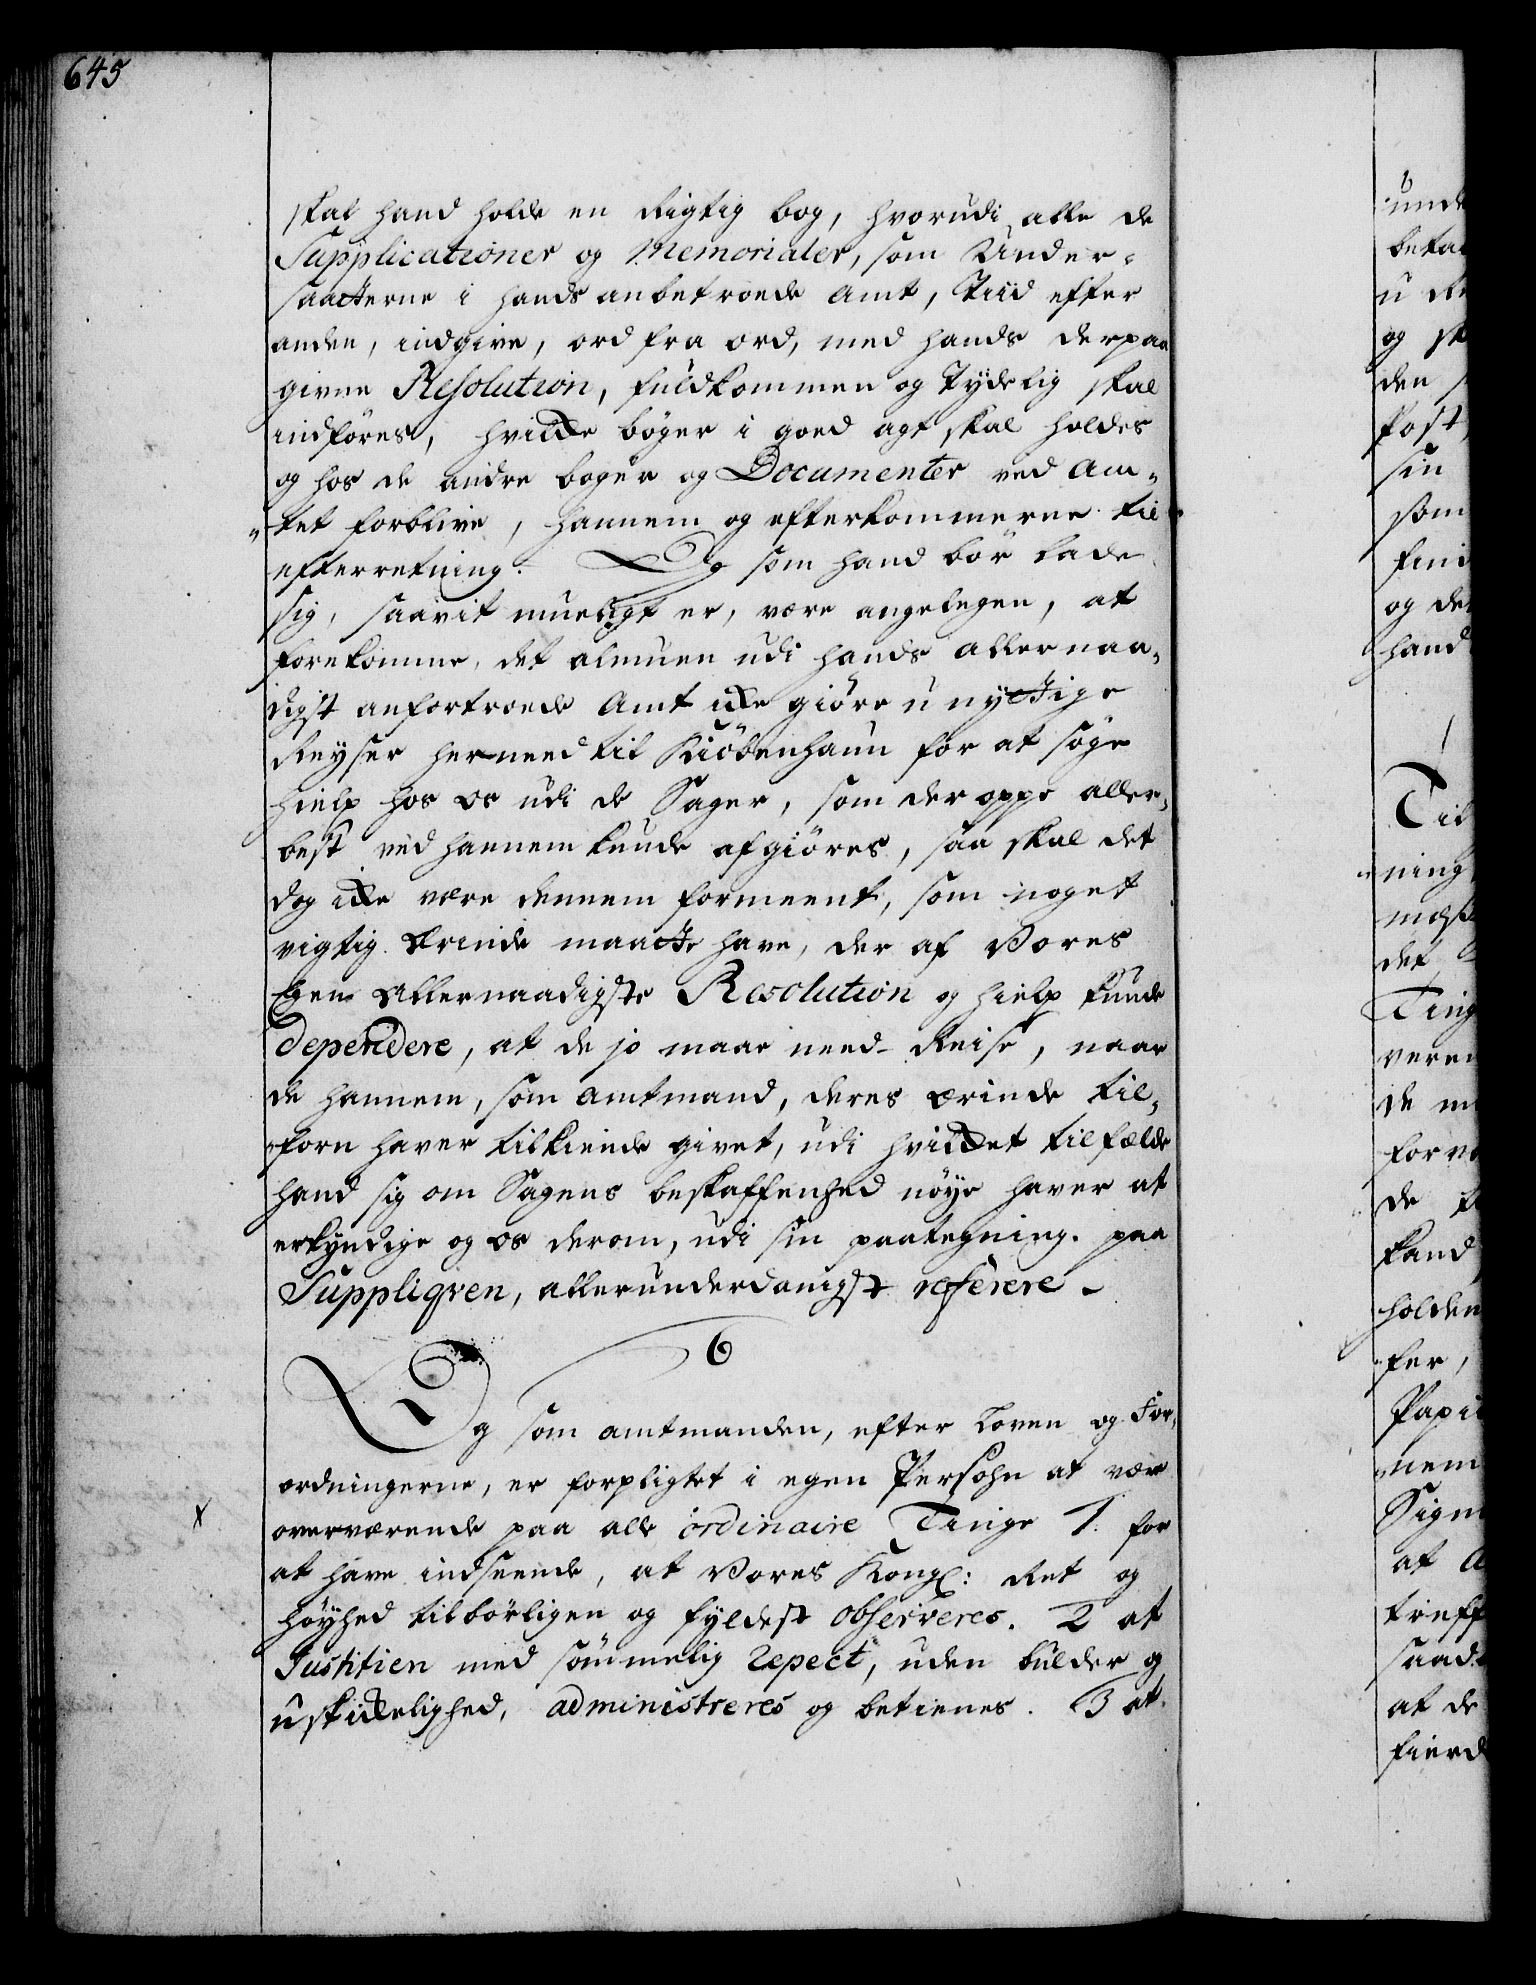 645
skal hand holde en Rigtig bog, hvorudi alle de
Supplicationer og Memorialer, som Under-
saatterne i hands anbetroede Amt, Tiid efter
anden, indgive, ord fra ord, med hands derpaa
givne Resolution, fuldkommen og Tydelig skal
indføres, hvilcke bøger i goed agt skal holdes
og hos de andre bøger og Documenter ved Am-
tet forblive, hannem og efterkommerne til
efterretning. Og som hand bør lade
sig, saavit mueligt er, være angelegen, at
forekomme, det almuen udi hands allernaa-
digst anfortroede Amt icke giøre unyttige
Reyser herneed til Kiøbenhaun for at søge
hielp hos os udi de Sager, som der oppe aller-
best ved hannem kunde afgiøres, saa skal det
dog icke være dennem formeent, som noget
vigtig Ærinde maatte have, der af Vores
Egen Allernaadigste Resolution og hielp kunde
dependere, at de jo maae need Reise, naar
de hannem, som Amtmand, deres ærinde til-
forn haver tilkiende givet, udi hvilcket tilfælde
hand sig om Sagens beskaffenhed nøye haver at
erkyndige og os derom, udi sin paategning paa
Suppliqven, allerunderdanigst referere.
6
Og som amtmanden, efter Loven og For-
ordningerne, er forpligtet i egen Persohn at være
overværende paa alle ordinaire Tinge 1. for
at have indseende, at Vores Kongl: Ret og
høyhed tilbørligen og fyldest observeres. 2 at
Justitien med sømmelig Respect, uden bulder og
uskickelighed, administreres og betienes. 3 at
x
unde
beta
u
og sk
den
Post
sin
som
find
og de
hand
Til
ning
det
Ting
veren
de m
forv
de
kand
holden
fer,
Papi
nem
Sign
at A
treff
saad
at de
fierd